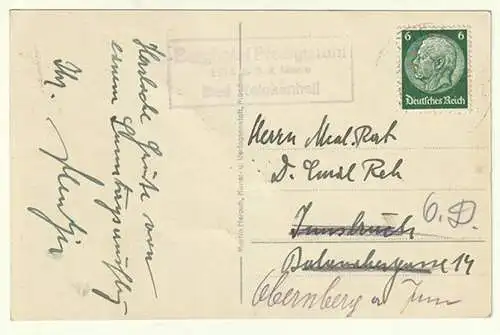 Herzliche Grüße von
einem Sonntagsausflug
Ihr.
Berghotel Predigtstuhl
Bad Reichenhall
6 6
Deutsches Reich
Herrn Med. Rat
D. Emil Reh
Innsbruck
14
Obernberg a Inn